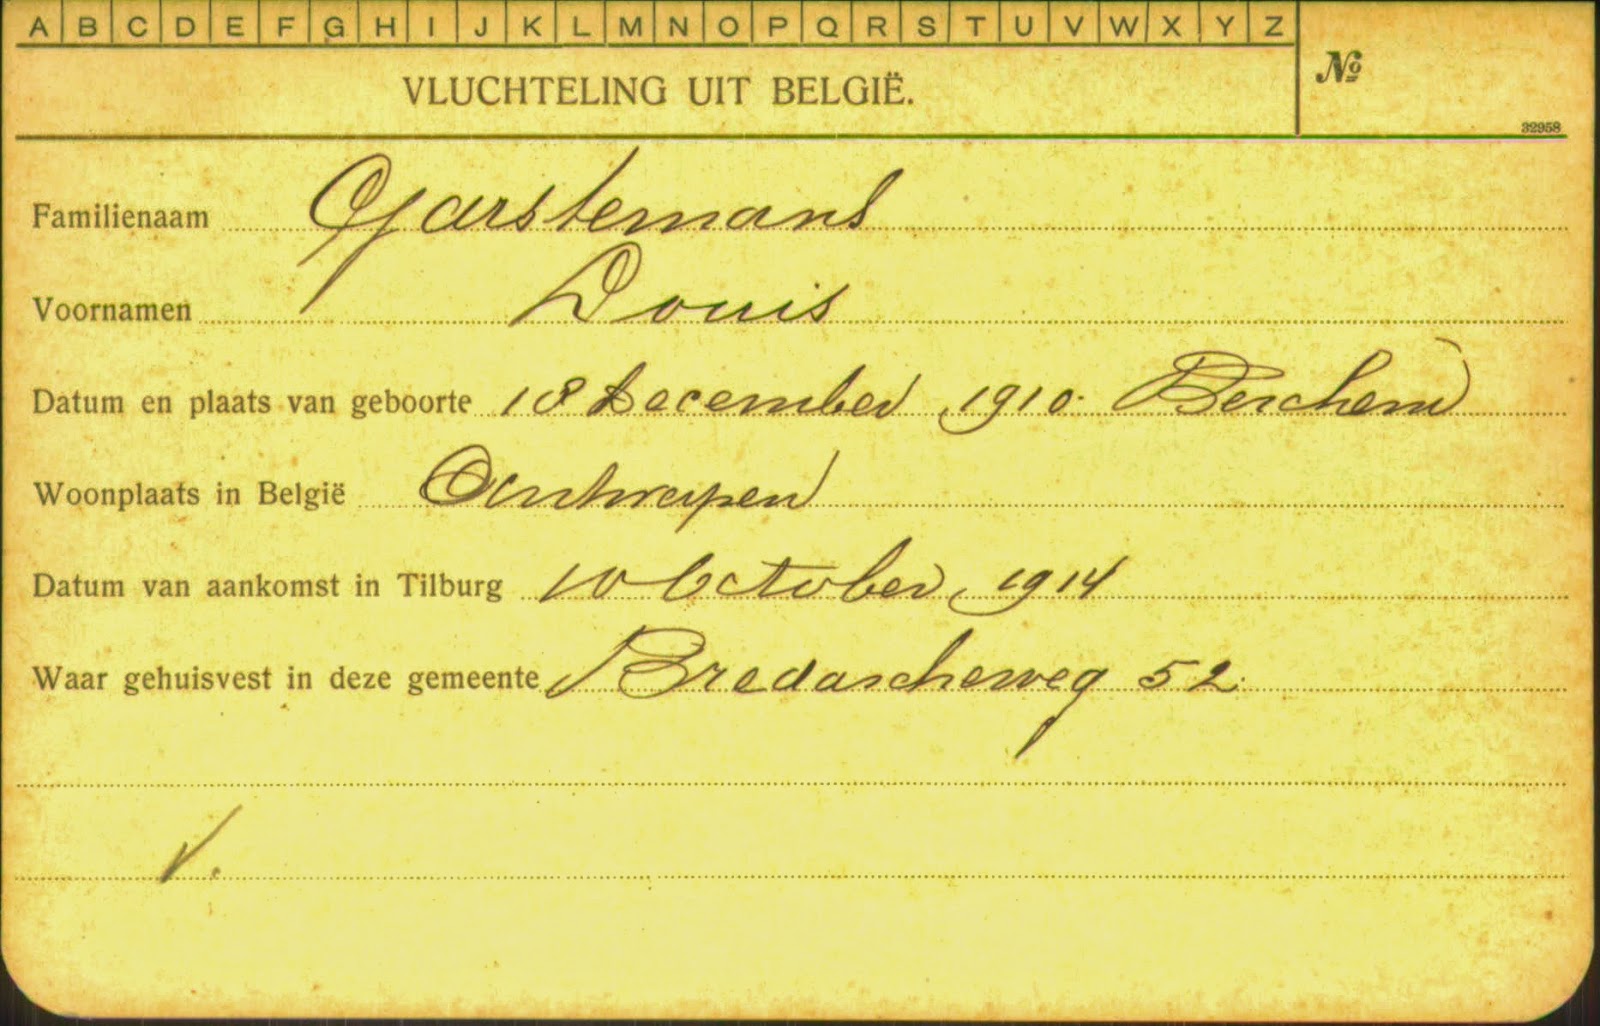 A B C D E F G H I J K L M N O P Q R S T U V W X Y Z
VLUCHTELING UIT BELGIË.
№
32958
Familienaam Garstemans
Voornamen Louis
Datum en plaats van geboorte 18 December 1910. Berchem
Woonplaats in België Antwerpen
Datum van aankomst in Tilburg 10 October 1914
Waar gehuisvest in deze gemeente Bredascheweg 52.
V.